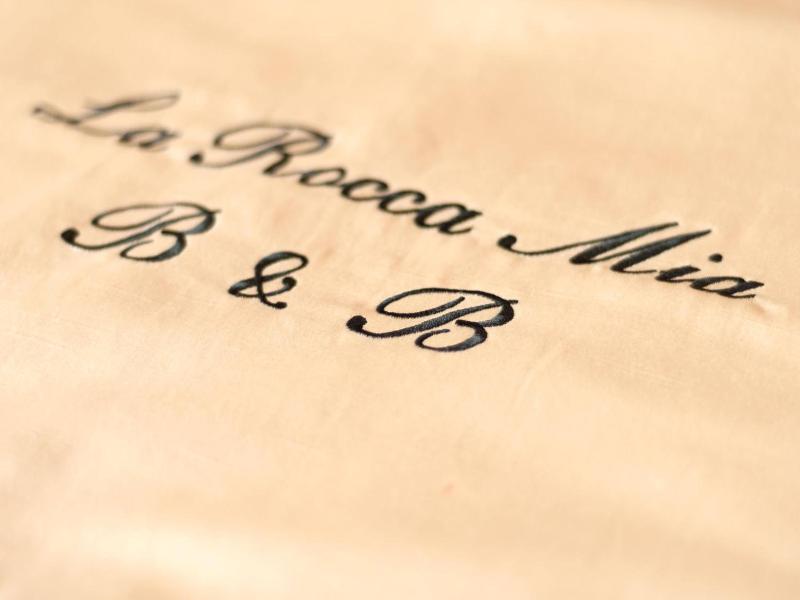 La Rocca Mia
B & B